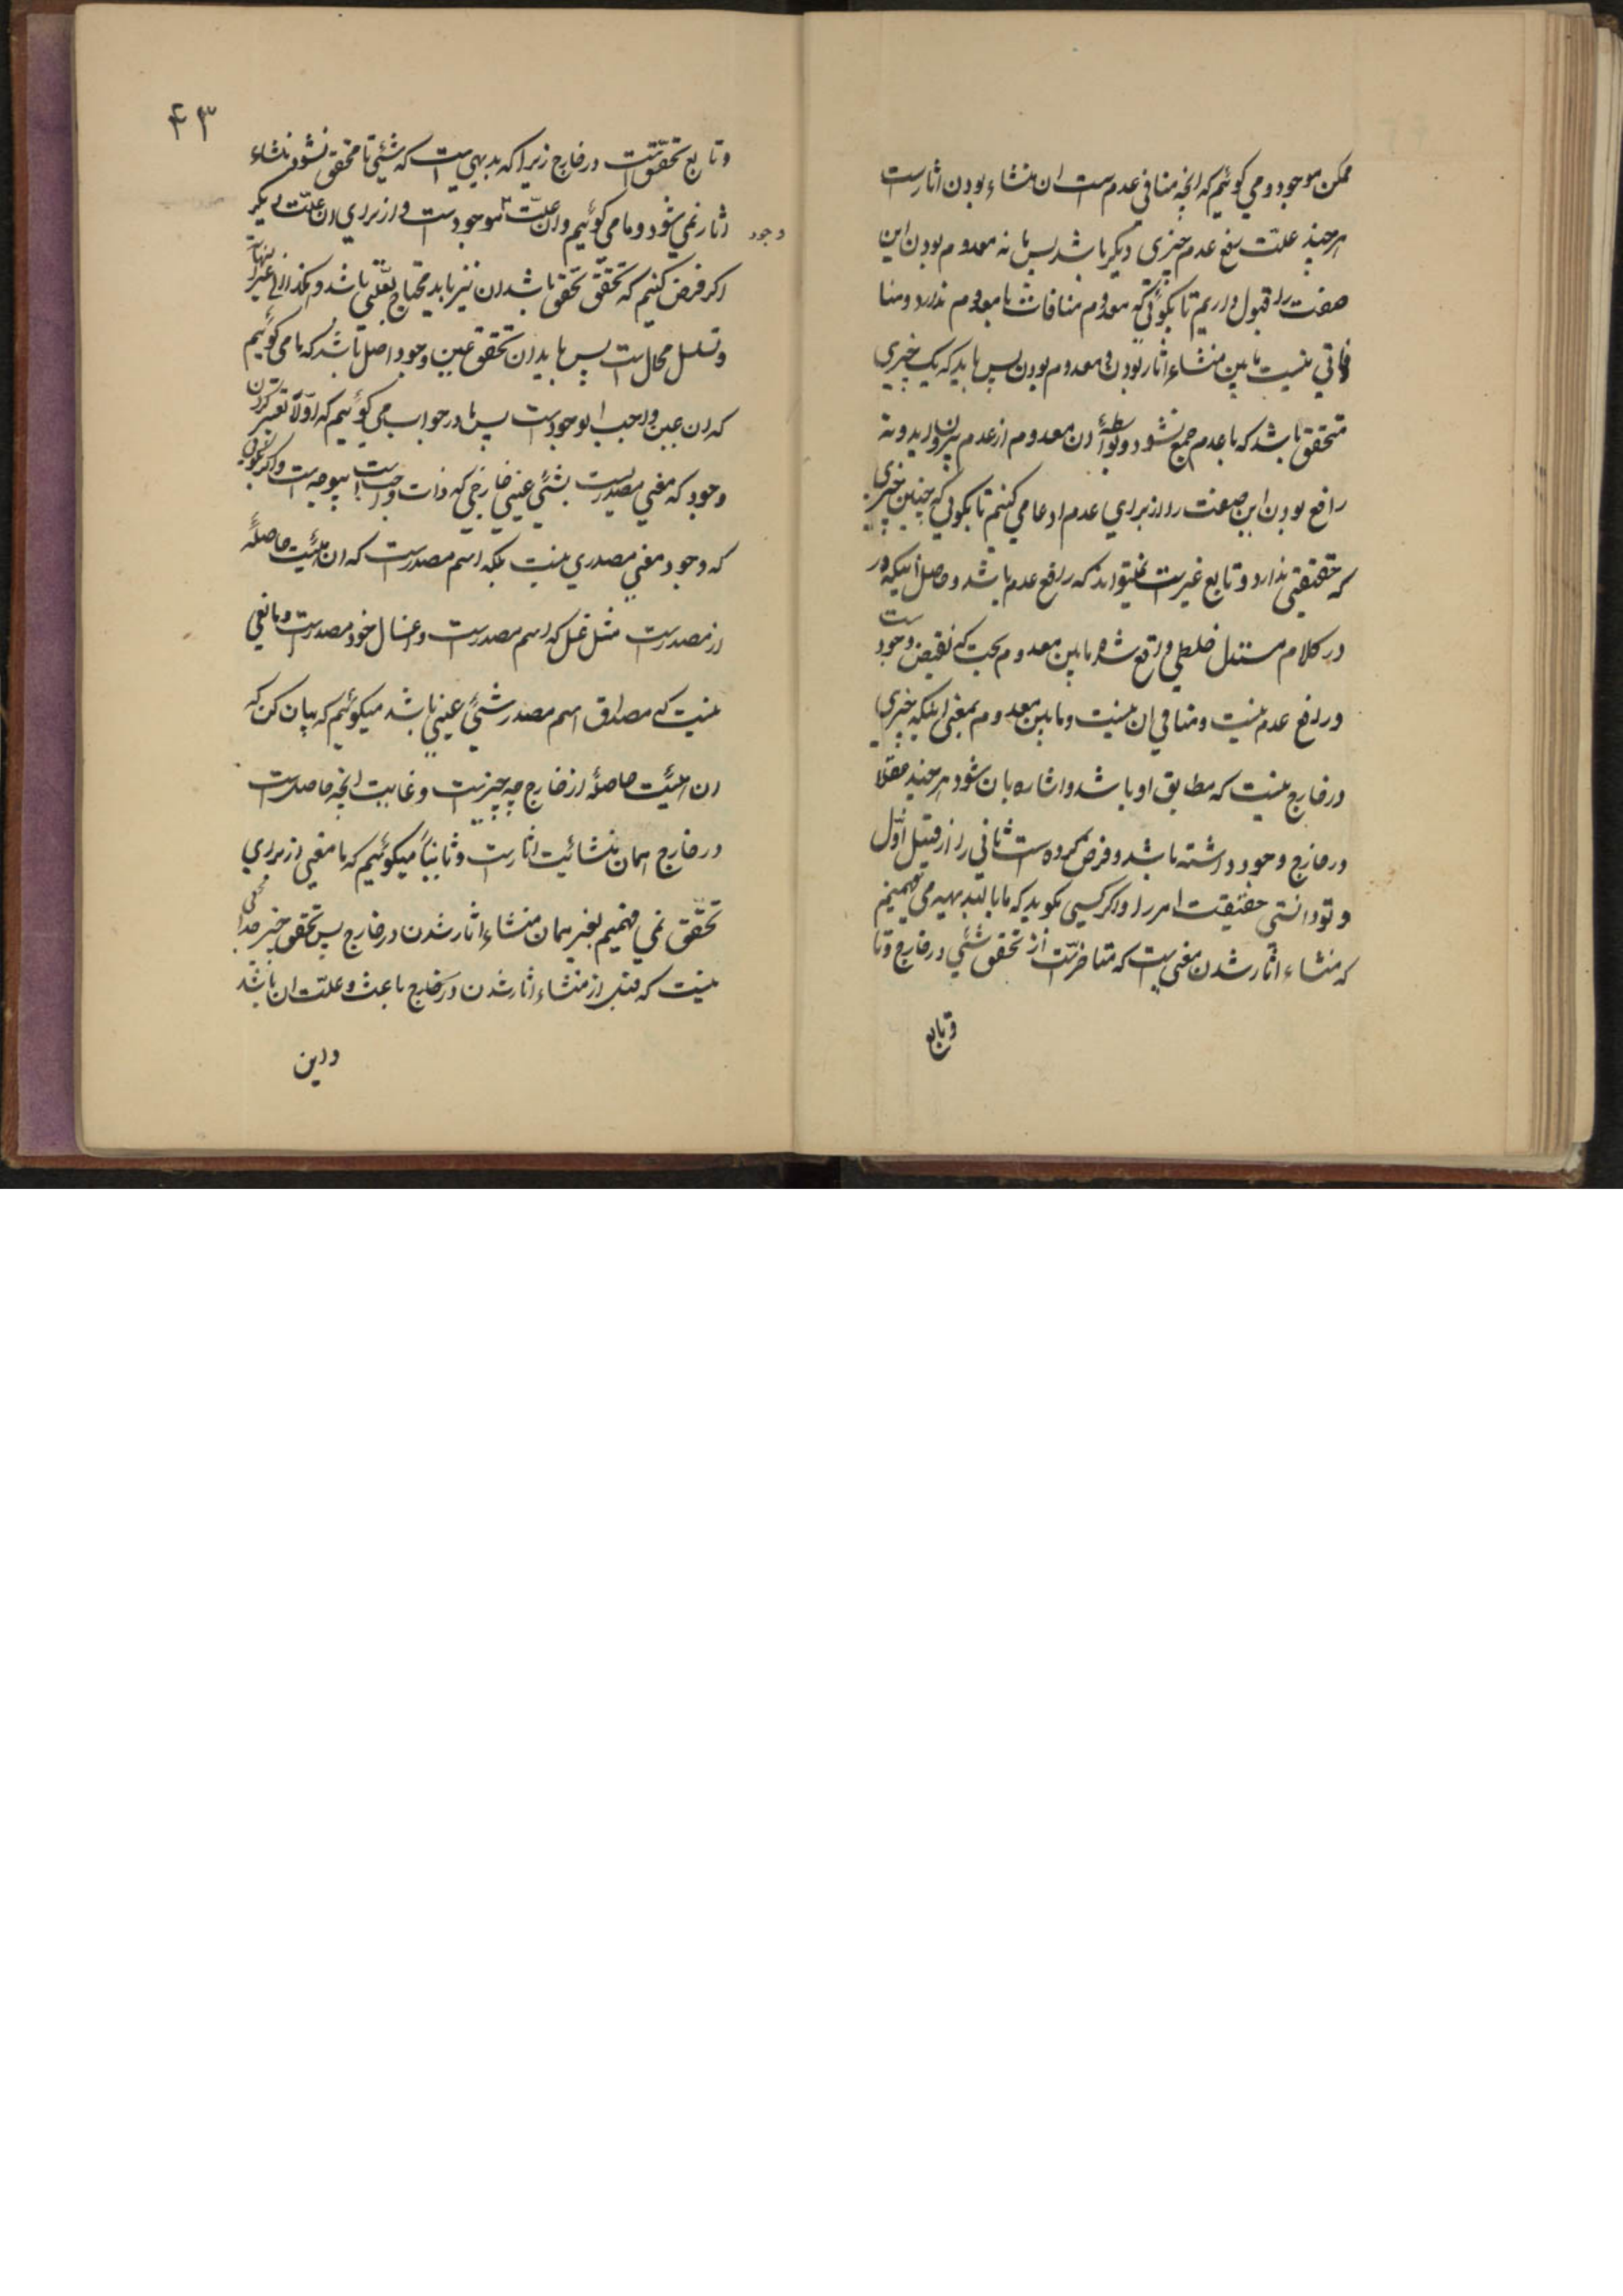 ممکن موجود و می کوئیم که انچه منافی عدم ست ان منشاء بودن اثار ست
هر چند علت رفع عدم چیزی دیکر باشد پس ما نه معدوم بودن این
صفت را قبول داریم تا بکوئی که معدوم منافات با معدوم ندارد و منا
فاتی نیست مابین منشاء اثار بودن و معدوم بودن پس باید که یک چیزی
متحقق باشد که با عدم جمع نشود و بواسطهٔ ان معدوم از عدم بیرون اید و نه
رافع بودن این صفت را از برای عدم ادعا می کنیم تا بکوئی که چنین چیزی
که حقیقتی ندارد و تابع غیر ست نمیتواند که رافع عدم باشد و حاصل اینکه در
در کلام مستدل خلطی واقع شده مابین معدوم بحت که نقیض وجود ست
و رافع عدم نیست و منافی ان نیست و مابین معدوم بمعنی اینکه چیزی
در خارج نیست که مطابق او باشد و اشاره بان شود هر چند عقلا
در خارج وجود داشته باشد و فرض کرده ست ثانی را از قبیل اول
و تو دانستی حقیقت امر را و اکر کسی بکوید که ما بالبدیهیه می فهمیم
که منشاء اثار شدن معنی یست که متاخر ست از تحقق شئی در خارج و تا
و تابع
۴۳
و تابع تحقق ست در خارج زیرا که بدیهی ست که شئی تا محقق نشود منشاء
اثار نمی شود و ما می کوئیم و ان علت موجود ست و از برای ان علت دیکر
وجود
اکر فرض کنیم که تحقق تحقق باشد ان نیز باید محتاج بعلتی باشد و هکذا الی غیر النهایه
و تسلسل محال ست پس باید ان تحقق عین وجود اصل باشد که ما می کوئیم
که ان عین واجب الوجود ست پس ما در جواب می کوئیم که اولا تعبیر کردن
وجود که معنی مصدری ست بشئی عینی خارجی که ذات واجب ست بیوجه ست و اکر بکوئی
که وجود معنی مصدری نیست بلکه اسم مصدر ست که ان هیئت حاصلهٔ
از مصدر ست مثل غسل که اسم مصدر ست و اغتسال خود مصدر ست و مانعی
نیست که مصداق اسم مصدر شئی عینی باشد میکوئیم که بیان کن که
ان هیئت حاصلهٔ از خارج چه چیز ست و غایت انچه حاصل ست
در خارج همان منشائیت اثار ست و ثانیاً میکوئیم که ما معنی از برای
تحقق نمی فهمیم بغیر همان منشاء اثار شدن در خارج پس تحقق چیز جدائی
نیست که قبل از منشاء اثار شدن در خارج باعث و علت ان باشد
و این